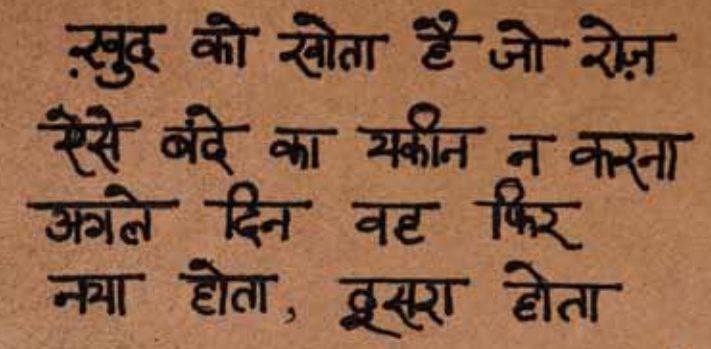 ख़ुद को खोता है जो रोज़
ऐसे बंदे का यकीन न करना
अगले दिन वह फिर
नया होता, दूसरा होता